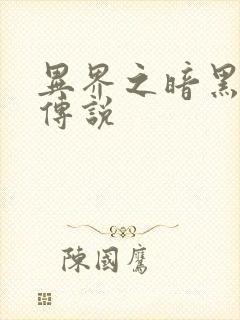 異界之暗黑
傳說
陳國鷹